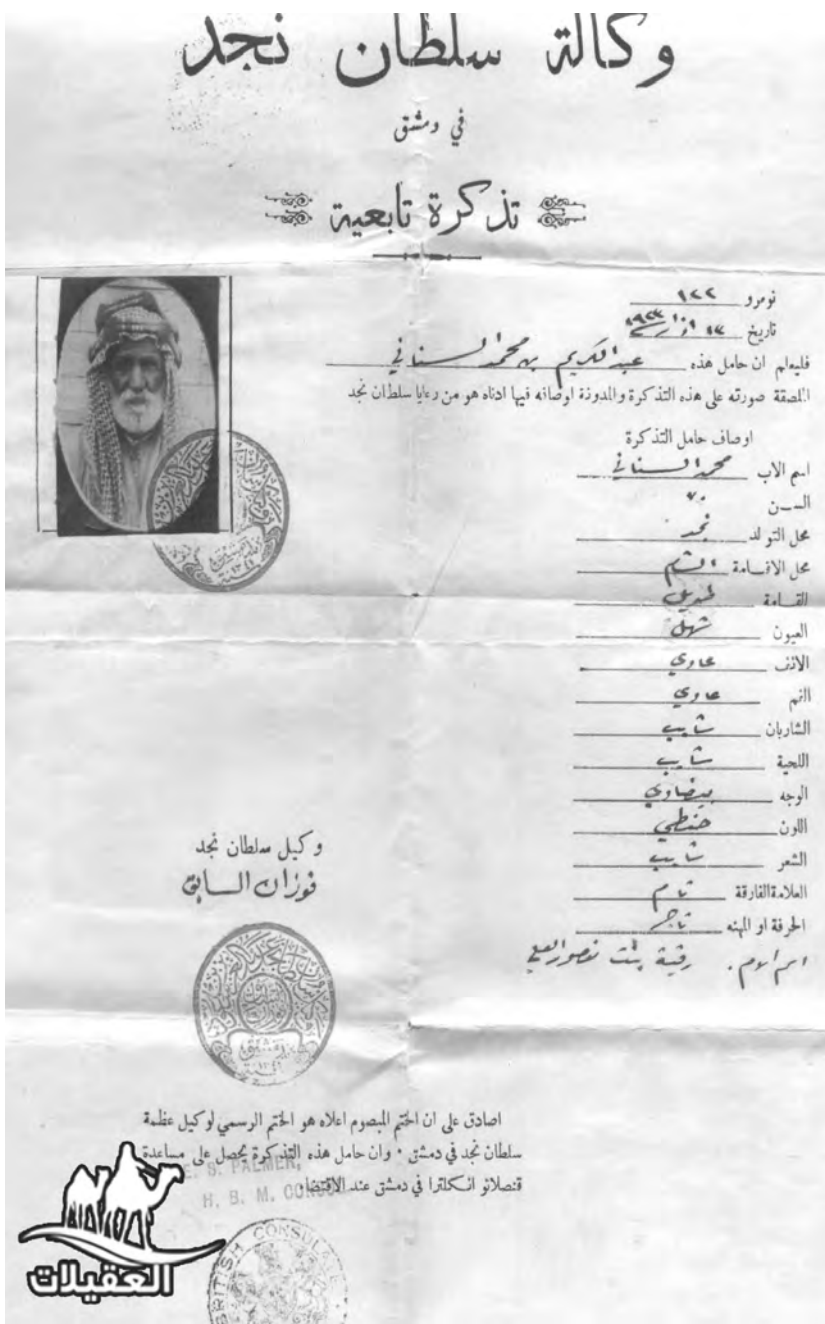 وكالة سلطان نجد
في دمشق
تذكرة تابعية
نومرو ١٢٢
تاريخ ١٧ اذار ١٩٢٣
فليعلم ان حامل هذه عبد الكريم بن محمد السناني
الملصقة صورته على هذه التذكرة والمدونة اوصافه فيها ادناه هو من رعايا سلطان نجد
اوصاف حامل التذكرة
اسم الاب محمد السناني
الســن ٧٠
محل التولد نجد
محل الاقــامة الشام
القــامة طويل
العيون شهل
الانف عادي
الفم عادي
الشاربان شايب
اللحية شايب
الوجه بيضاوي
اللون حنطي
الشعر شايب
العلامة الفارقة تام
الحرفة او المهنه تاجر
اسم الام. رقية بنت منصور العلي
وكيل سلطان نجد
فوزان السابق
بدمشق
سنة ١٣٤١
اصادق على ان الختم المبصوم اعلاه هو الختم الرسمي لوكيل عظمة
سلطان نجد في دمشق . وان حامل هذه التذكرة يحصل على مساعدة
قنصلاتو انكلترا في دمشق عند الاقتضاء
E. S. PALMER,
H. B. M. CONSUL
BRITISH CONSULATE
العقيلات